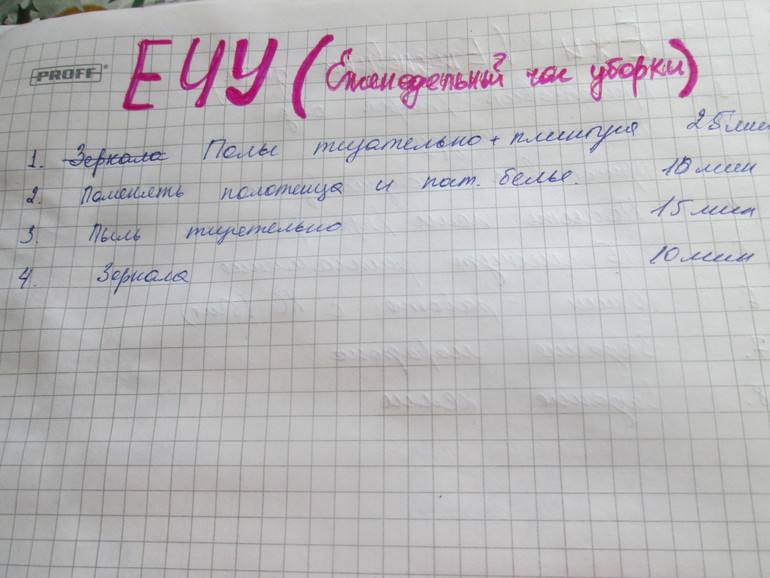 PROFF®
ЕЧУ (Еженедельный час уборки)
1. Зеркала Полы тщательно + плинтуса 25 мин
2. Поменять полотенца и пост. белье. 10 мин
3. Пыль тщательно 15 мин
4. Зеркала 10 мин